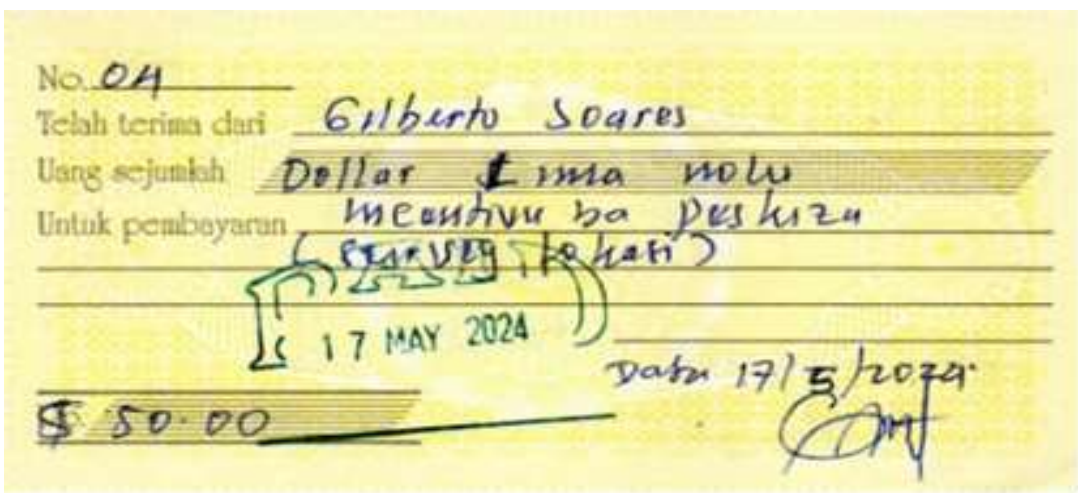 No. 04
Telah terima dari Gilberto Soares
Uang sejumlah Dollar Lima nolu
Untuk pembayaran incentivu ba peskiza
( survey lokasi )
PAID
17 MAY 2024
Data 17/5/2024.
$ 50.00